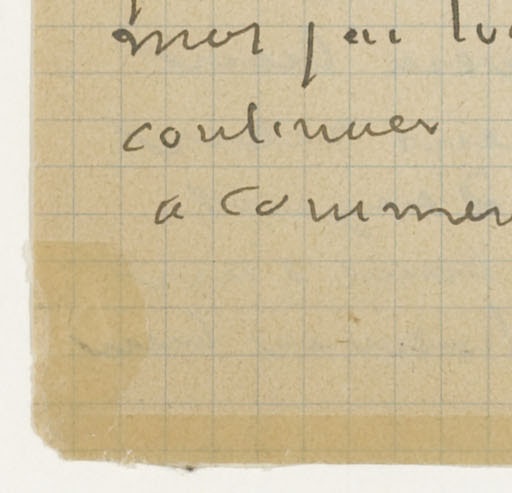 moi j'ai
continuer
a commen